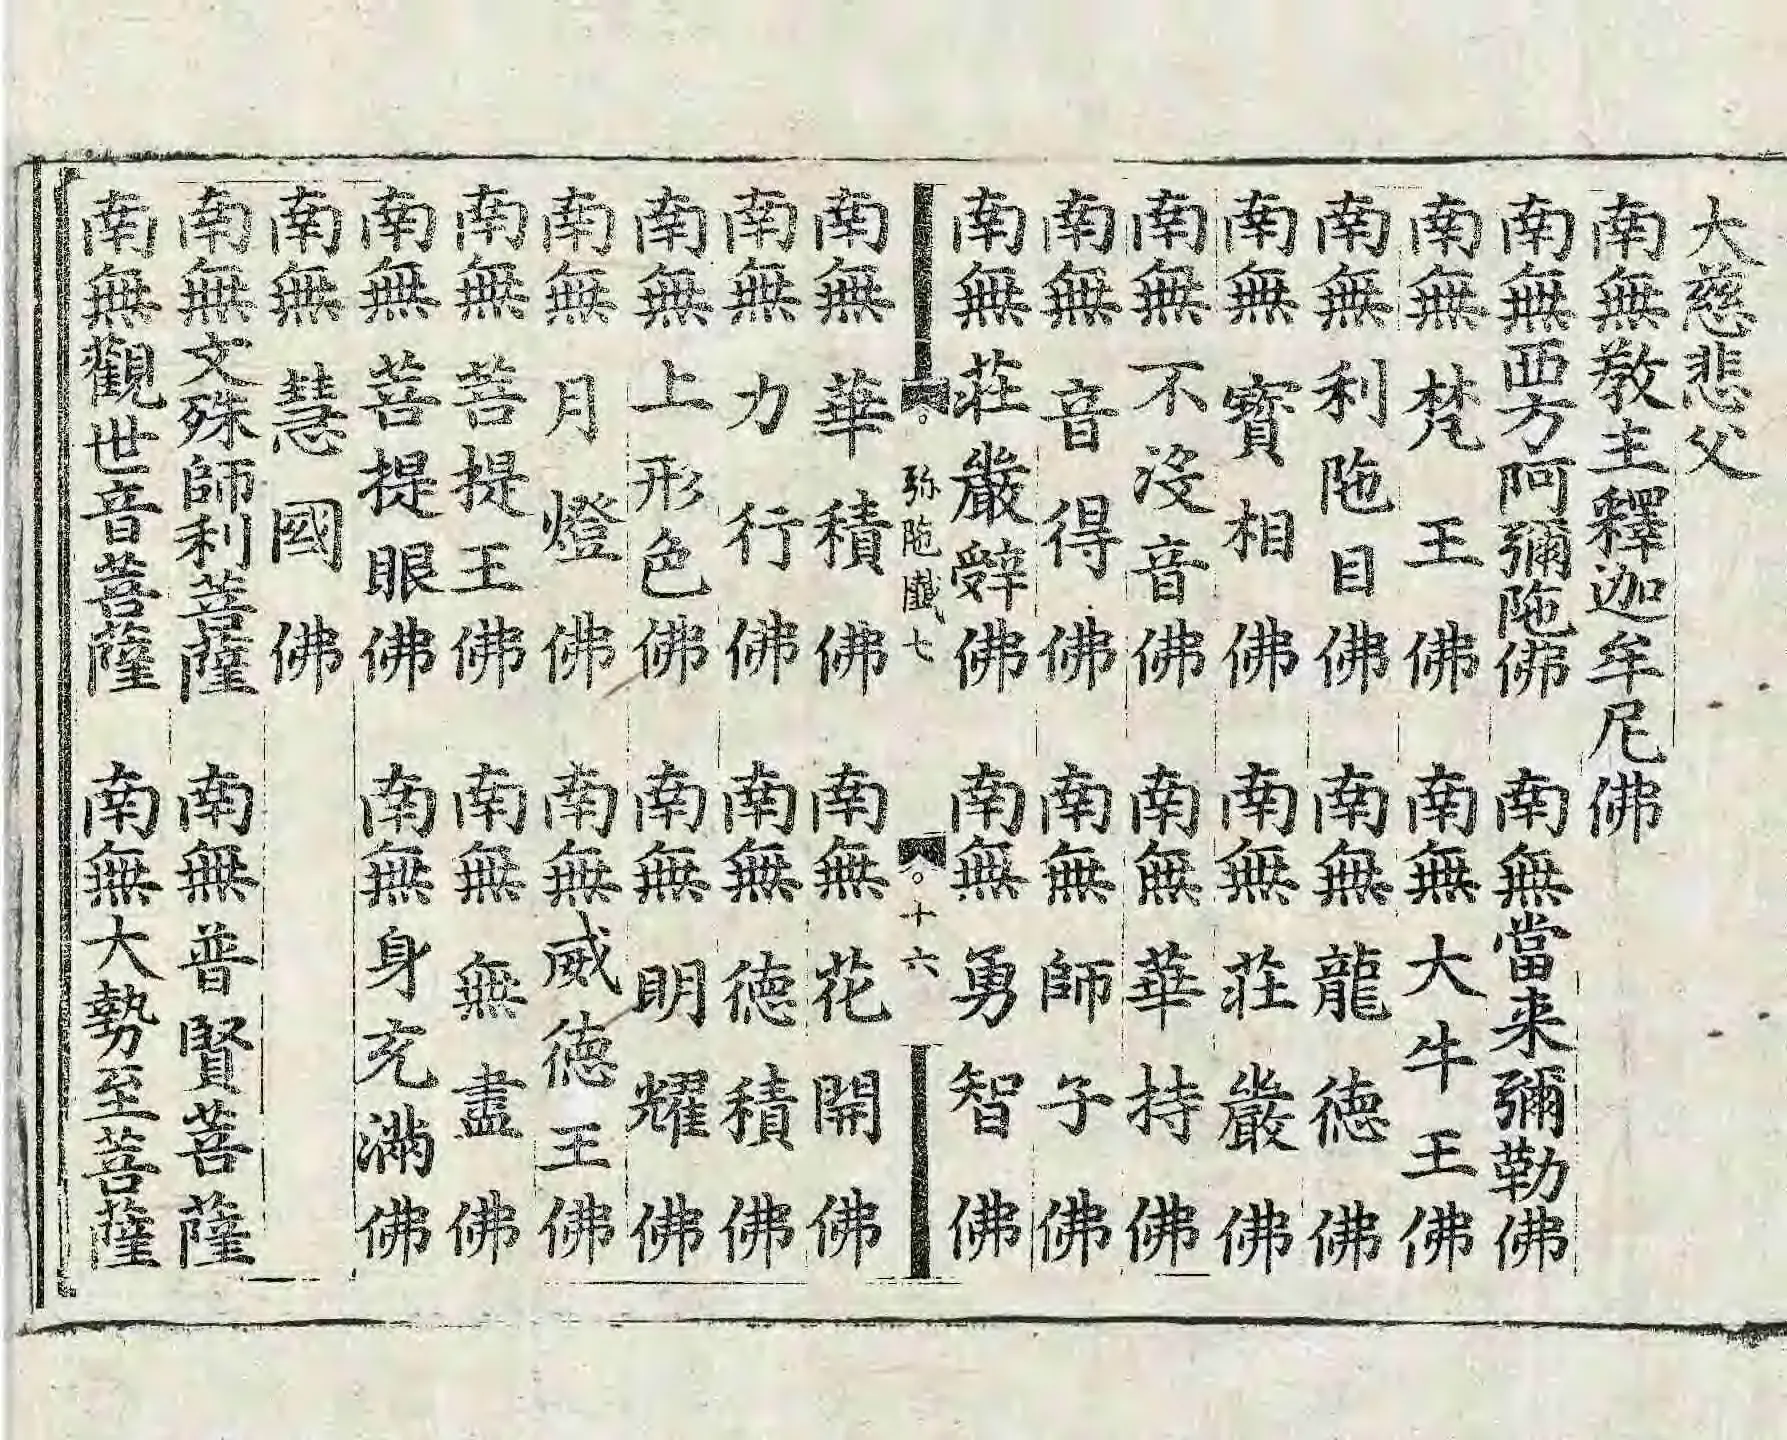 大慈悲父
南無教主釋迦牟尼佛
南無西方阿彌陁佛　南無當来彌勒佛
南無梵王佛　南無大牛王佛
南無利陁目佛　南無龍德佛
南無寳相佛　南無莊嚴佛
南無不没音佛　南無華持佛
南無音得佛　南無師子佛
南無莊嚴辤佛　南無勇智佛
弥陁懺七　十六
南無華積佛　南無花開佛
南無力行佛　南無德積佛
南無上形色佛　南無明耀佛
南無月燈佛　南無威德王佛
南無菩提王佛　南無無盡佛
南無菩提眼佛　南無身充滿佛
南無慧國佛
南無文殊師利菩薩　南無普賢菩薩
南無觀世音菩薩　南無大勢至菩薩